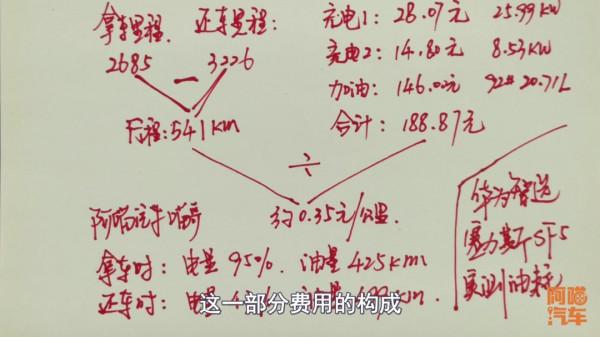 拿车里程. 还车里程:
2685 — 3226
行程:541km
充电1: 28.07元 25.99KW
充电2: 14.80元 8.53KW
加油: 146.00元 92# 20.71L
合计: 188.87元
÷
阿喵汽车喵哥 约0.35元/公里.
华为智选
赛力斯SF5
实测油耗
拿车时: 电量95%. 油量425km
还车时: 电量 km.
这一部分费用的构成
阿喵汽车